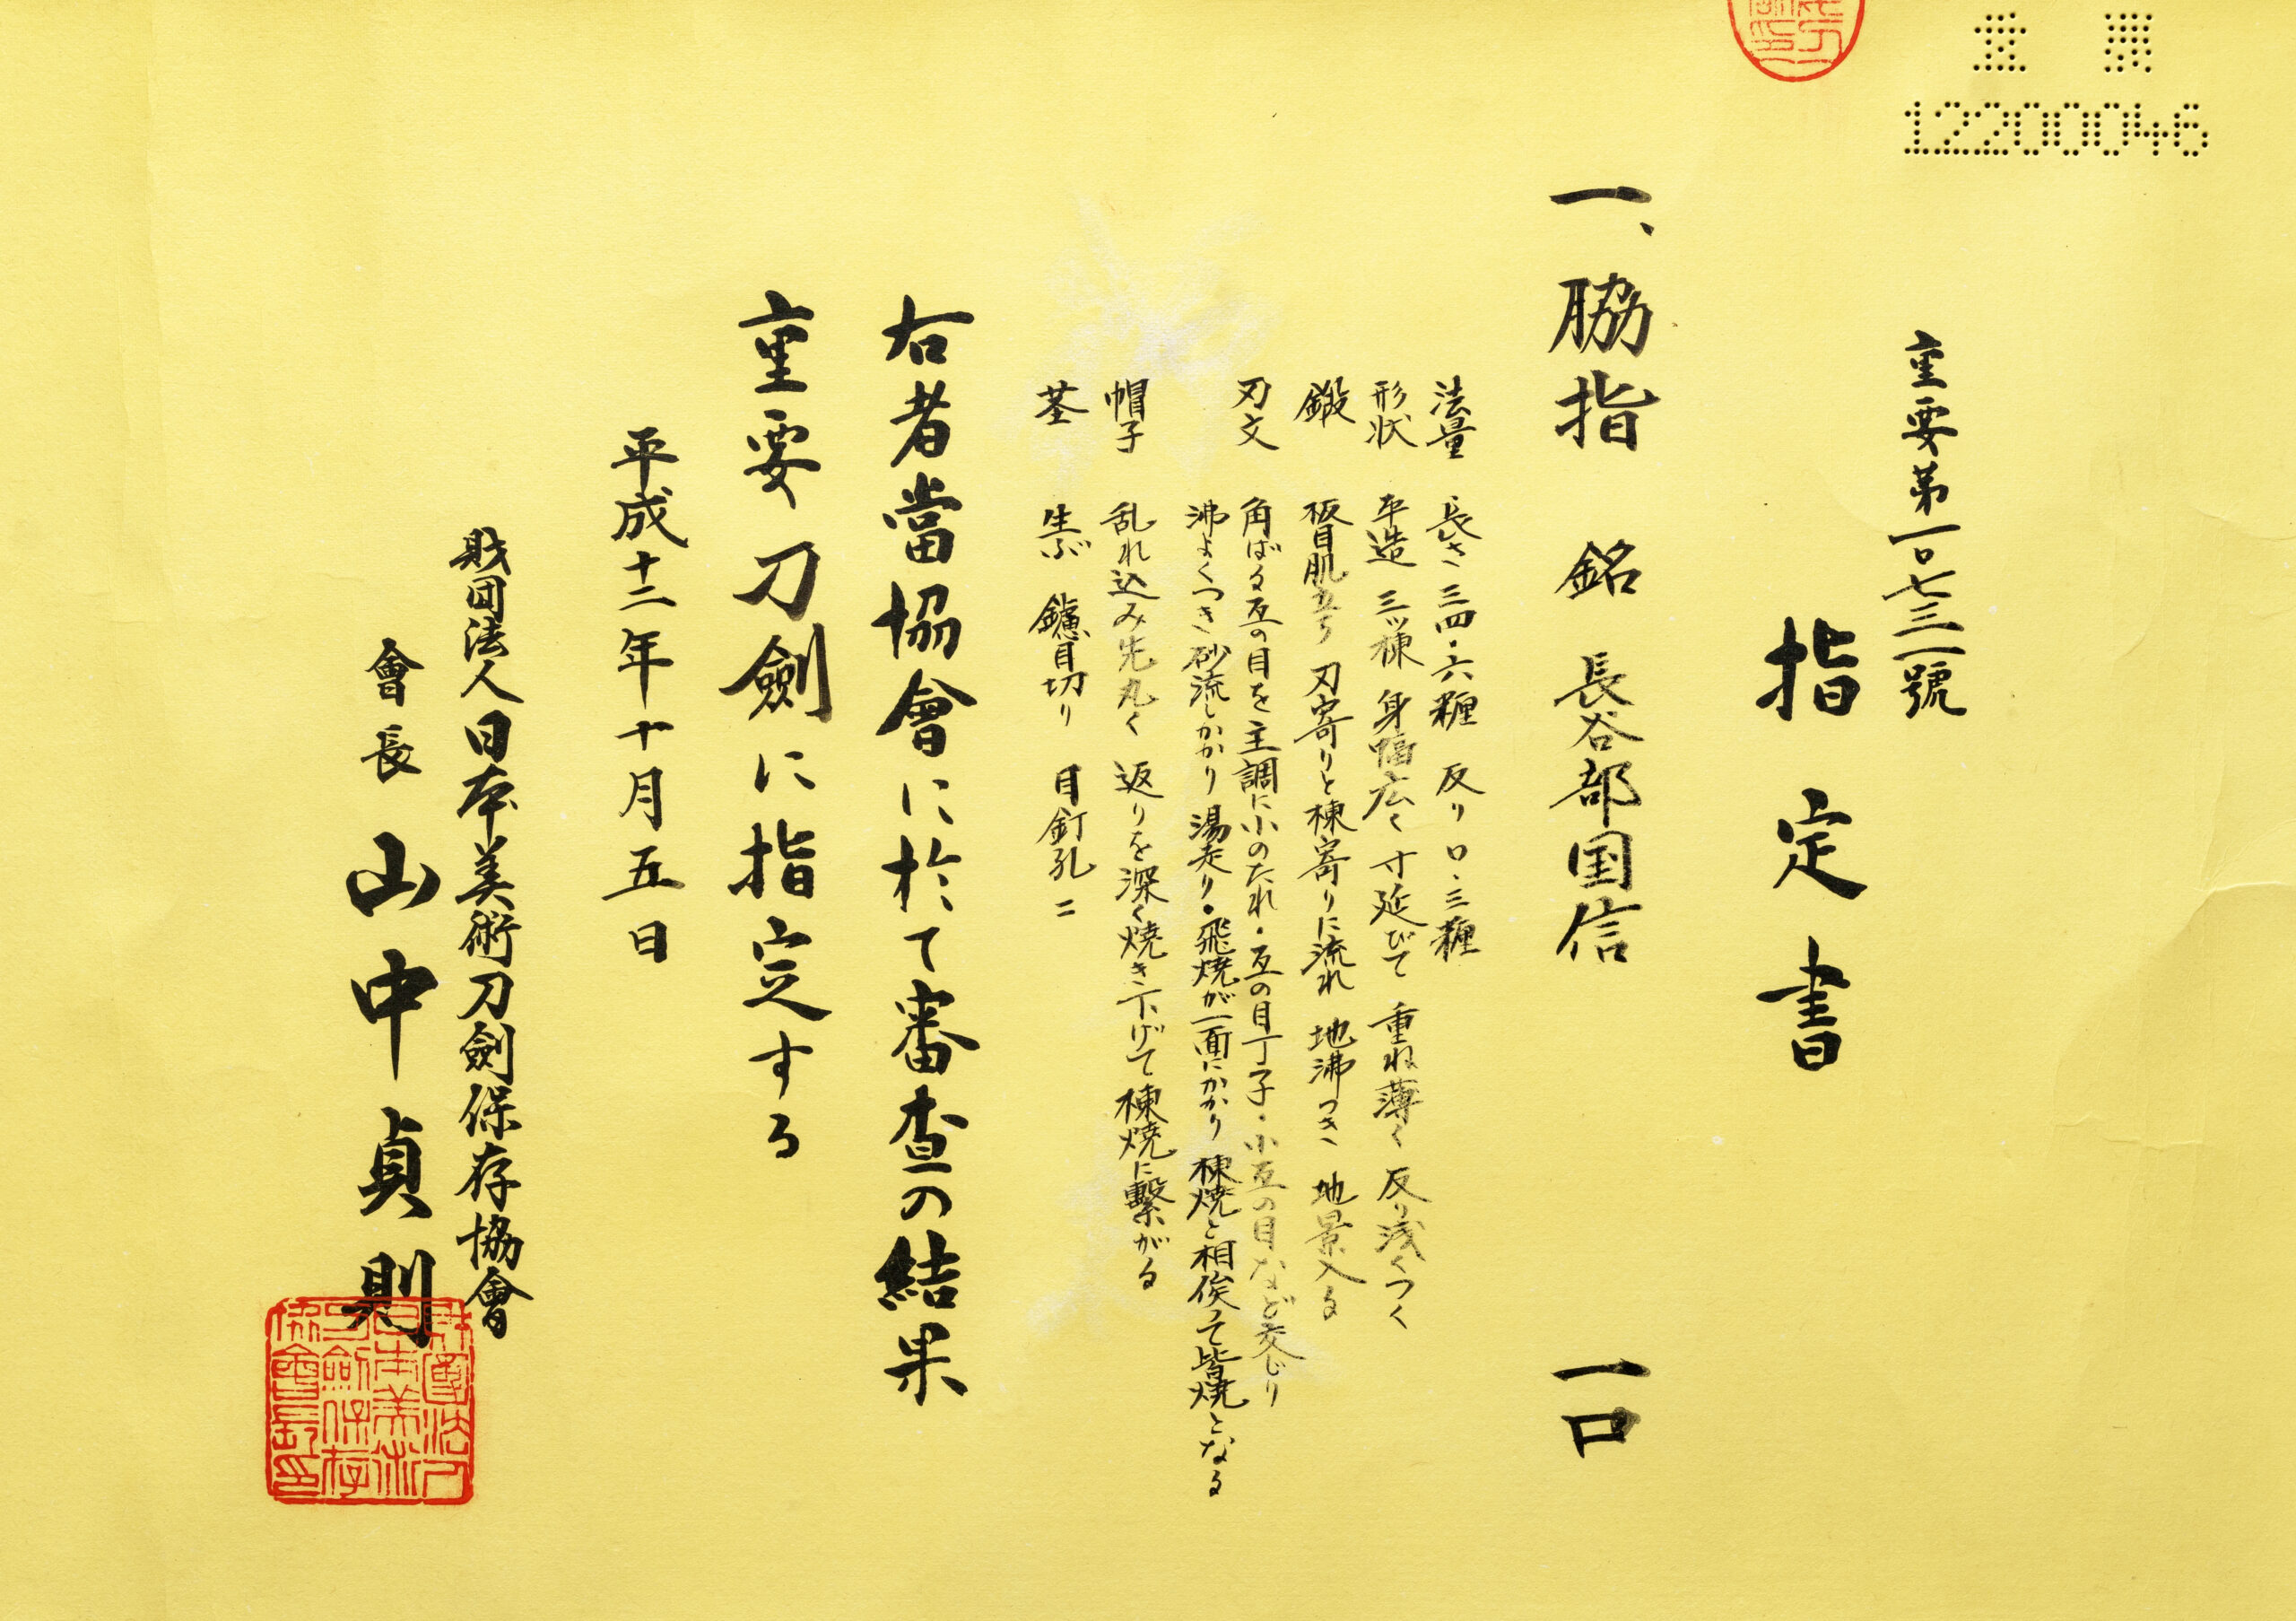 12200046
重要第一〇七三一號
指定書
一、脇指 銘 長谷部国信 一口
法量 長さ 三四・六糎 反り 〇・三糎
形状 平造 三ッ棟 身幅広く 寸延びて 重ね薄く 反り浅くつく
鍛 板目肌立ち 刃寄りと棟寄りに流れ 地沸つき 地景入る
刃文 角ばる互の目を主調に小のたれ・互の目丁子・小互の目など交じり
沸よくつき 砂流しかかり 湯走り・飛焼が一面にかかり 棟焼と相俟って皆焼となる
帽子 乱れ込み先丸く 返りを深く焼き下げて棟焼に繋がる
茎 生ぶ 鑢目切り 目釘孔二
右者當協會に於て審査の結果
重要刀劍に指定する
平成十二年十月五日
財団法人日本美術刀劍保存協會
會長 山中貞則